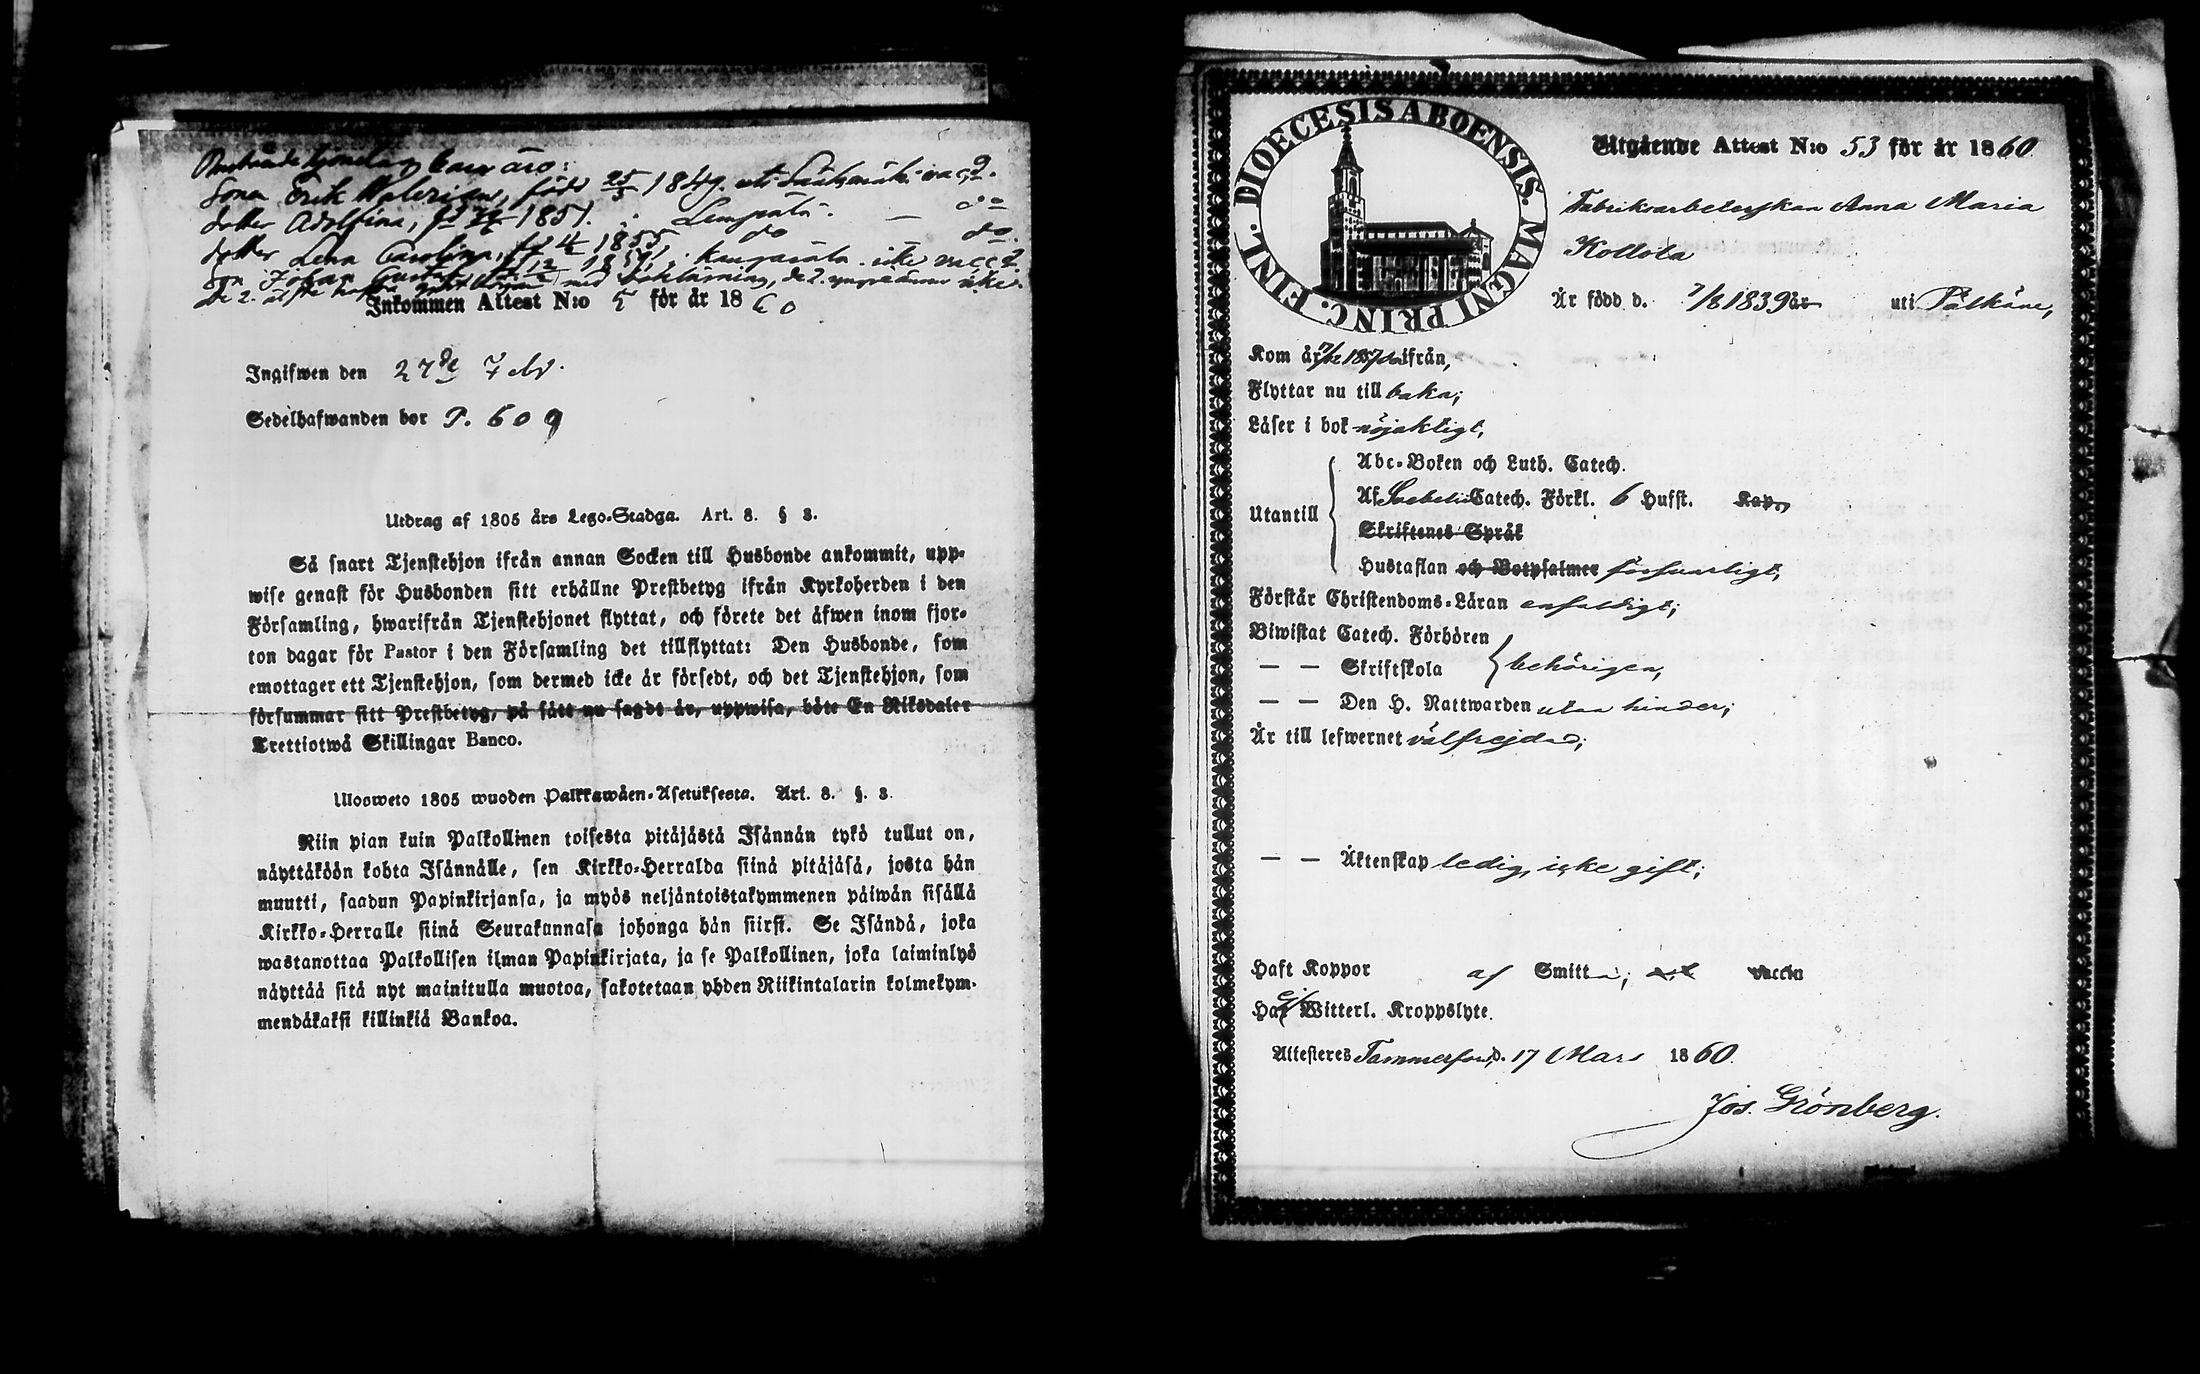 barn äro:
Sonen Erik Walerian, född 25/3 1849. uti Sääksmäki vacc.
dotter Adolfina, 1851. Lempäälä. — do
dotter Lena Carolina, 1855 do do.
son Johan Gustaf, Kangasala. icke vacc.
de 2 yngre ännu icke.
Inkommen Attest N:o 5 för år 1860
Ingifwen den 27de Febr.
Sedelhafwanden bor P. 609
Utdrag af 1805 års Lego-Stadga. Art. 8. § 3.
Så snart Tjenstehjon ifrån annan Socken till Husbonde ankommit, upp-
wise genast för Husbonden sitt erhållne Prestbetyg ifrån Kyrkoherden i den
Församling, hwarifrån Tjenstehjonet flyttat, och förete det äfwen inom fjor-
ton dagar för Pastor i den Församling det tillflyttat: Den Husbonde, som
emottager ett Tjenstehjon, som dermed icke är försedt, och det Tjenstehjon, som
försummar sitt Prestbetyg, på sätt nu sagdt är, uppwisa, böte En Riksdaler
Trettiotwå Skillingar Banco.
Ulosweto 1805 wuoden Palkkawäen-Asetuksesta. Art. 8. §. 3.
Niin pian kuin Palkollinen toisesta pitäjästä Isännän tykö tullut on,
näyttäköön kohta Isännälle, sen Kirkko-Herralda siinä pitäjäsä, josta hän
muutti, saadun Papinkirjansa, ja myös neljäntoistakymmenen päiwän sisällä
Kirkko-Herralle siinä Seurakunnasa johonga hän siirsi. Se Isändä, joka
wastanottaa Palkollisen ilman Papinkirjata, ja se Palkollinen, joka laiminlyö
näyttää sitä nyt mainitulla muotoa, sakotetaan yhden Riikintalarin kolmekym-
mendäkaksi killinkiä Bankoa.
FINL. DIOECESIS ABOENSIS. MAGNI PRINC.
Utgående Attest N:o 53 för år 1860
Fabriksarbeterskan Anna Maria
Kollola
Är född d. 7/8 1839 år uti Pälkäne,
Kom år 7/12 18 ifrån,
Flyttar nu till baka;
Läser i bok nöjaktigt,
Abc-Boken och Luth. Catech.
Af Svebelii Catech. Förkl. 6 Hufst. Kap.
Utantill
Skriftenes Språk
Hustaflan och Botpsalmer försvarligt,
Förstår Christendoms-Läran enfaldigt;
Biwistat Catech. Förhören
— — Skriftskola behörigen,
— — Den H. Nattwarden utan hinder;
Är till lefwernet välfrejdad;
— — Äktenskap ledig, icke gift;
Haft Koppor af Smitta; vaccin
Haf ej Witterl. Kroppslyte.
Attesteres Tammerfors, d. 17 Mars 1860.
Jos. Grönberg.